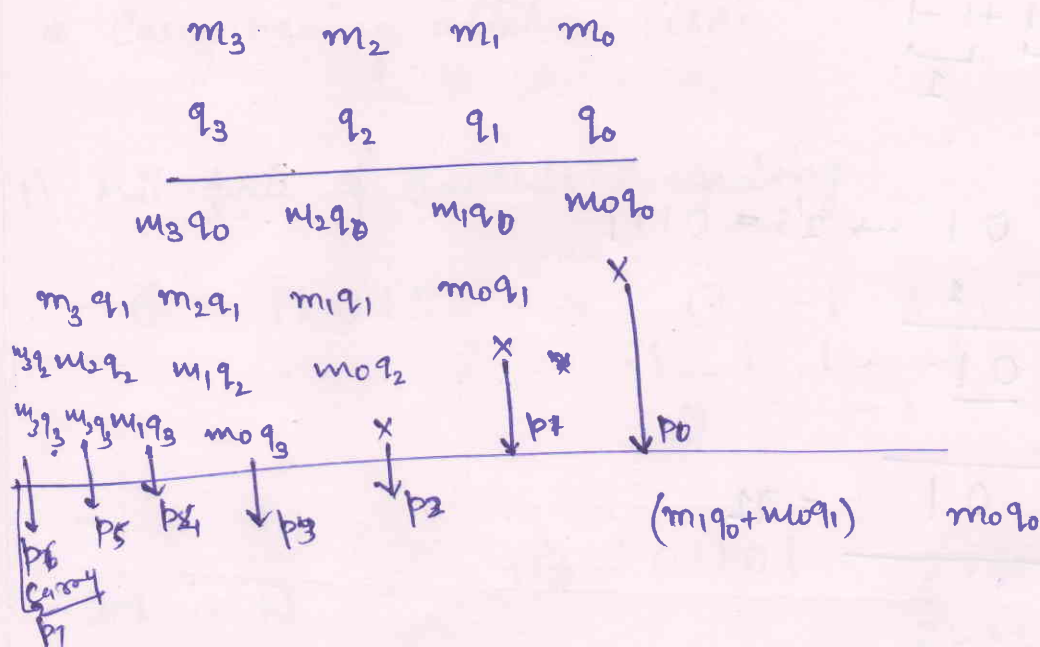 m3 m2 m1 m0
q3 q2 q1 q0
m3q0 m2q0 m1q0 m0q0
m3q1 m2q1 m1q1 m0q1 x
m3q2 m2q2 m1q2 m0q2 x
m3q3 m2q3 m1q3 m0q3 x
p6 p5 p4 p3 p2 p1 p0
(m1q0+m0q1) m0q0
carry
p7